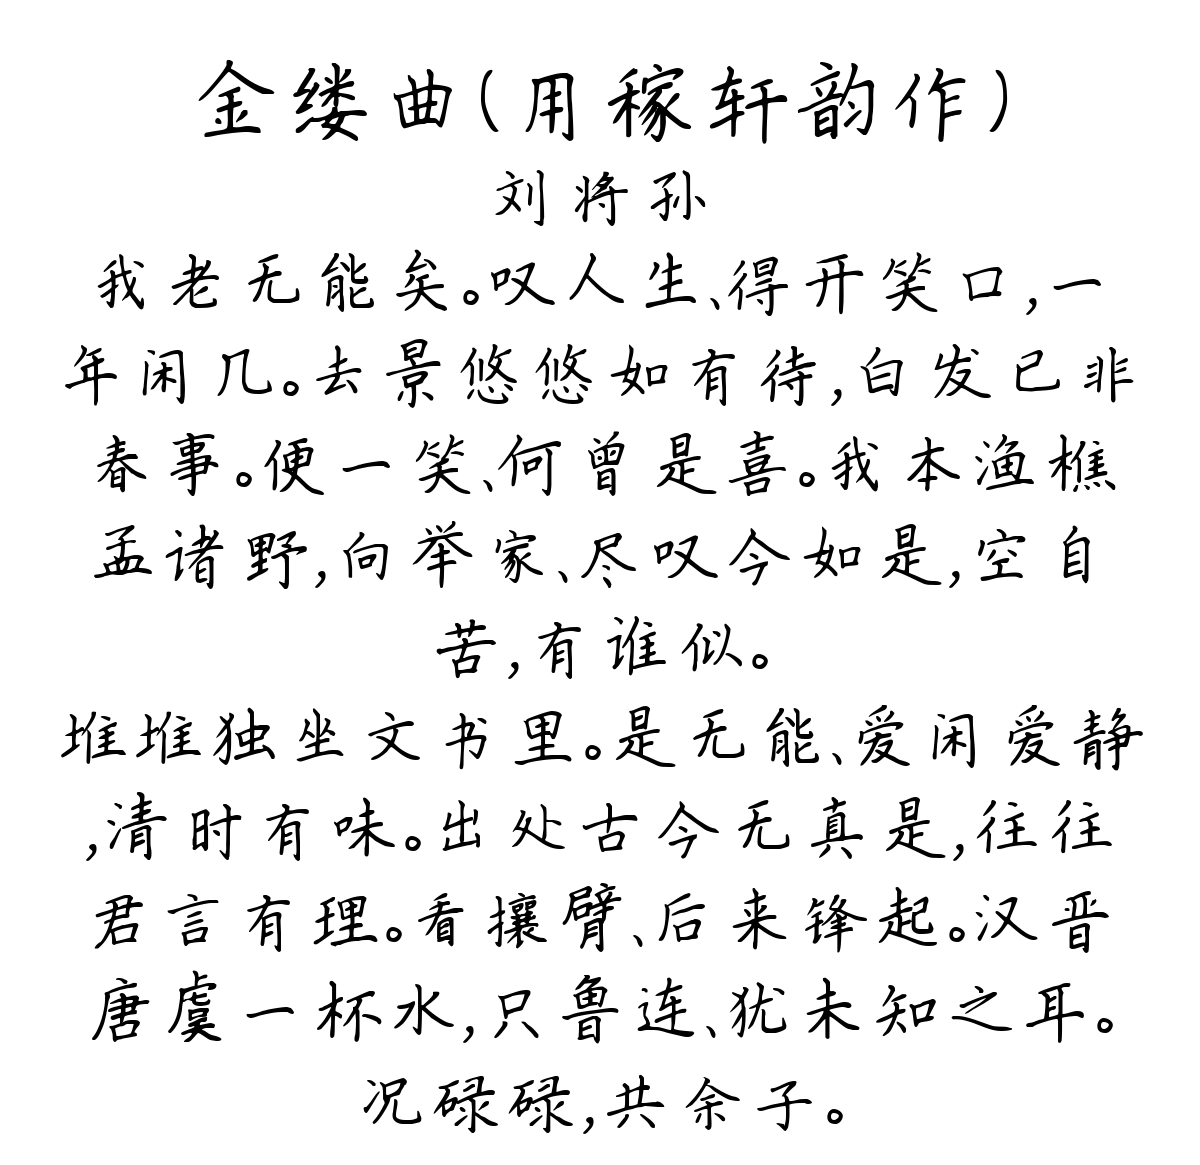 金缕曲(用稼轩韵作)
刘将孙
我老无能矣。叹人生、得开笑口,一
年闲几。去景悠悠如有待,白发已非
春事。便一笑、何曾是喜。我本渔樵
孟诸野,向举家、尽叹今如是,空自
苦,有谁似。
堆堆独坐文书里。是无能、爱闲爱静
,清时有味。出处古今无真是,往往
君言有理。看攘臂、后来锋起。汉晋
唐虞一杯水,只鲁连、犹未知之耳。
况碌碌,共余子。